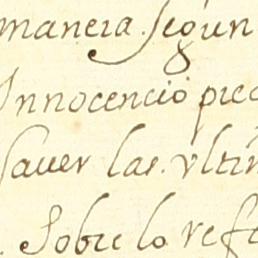 manera. segun
Innocencio pre
saver las. vlti
. Sobre lo refe